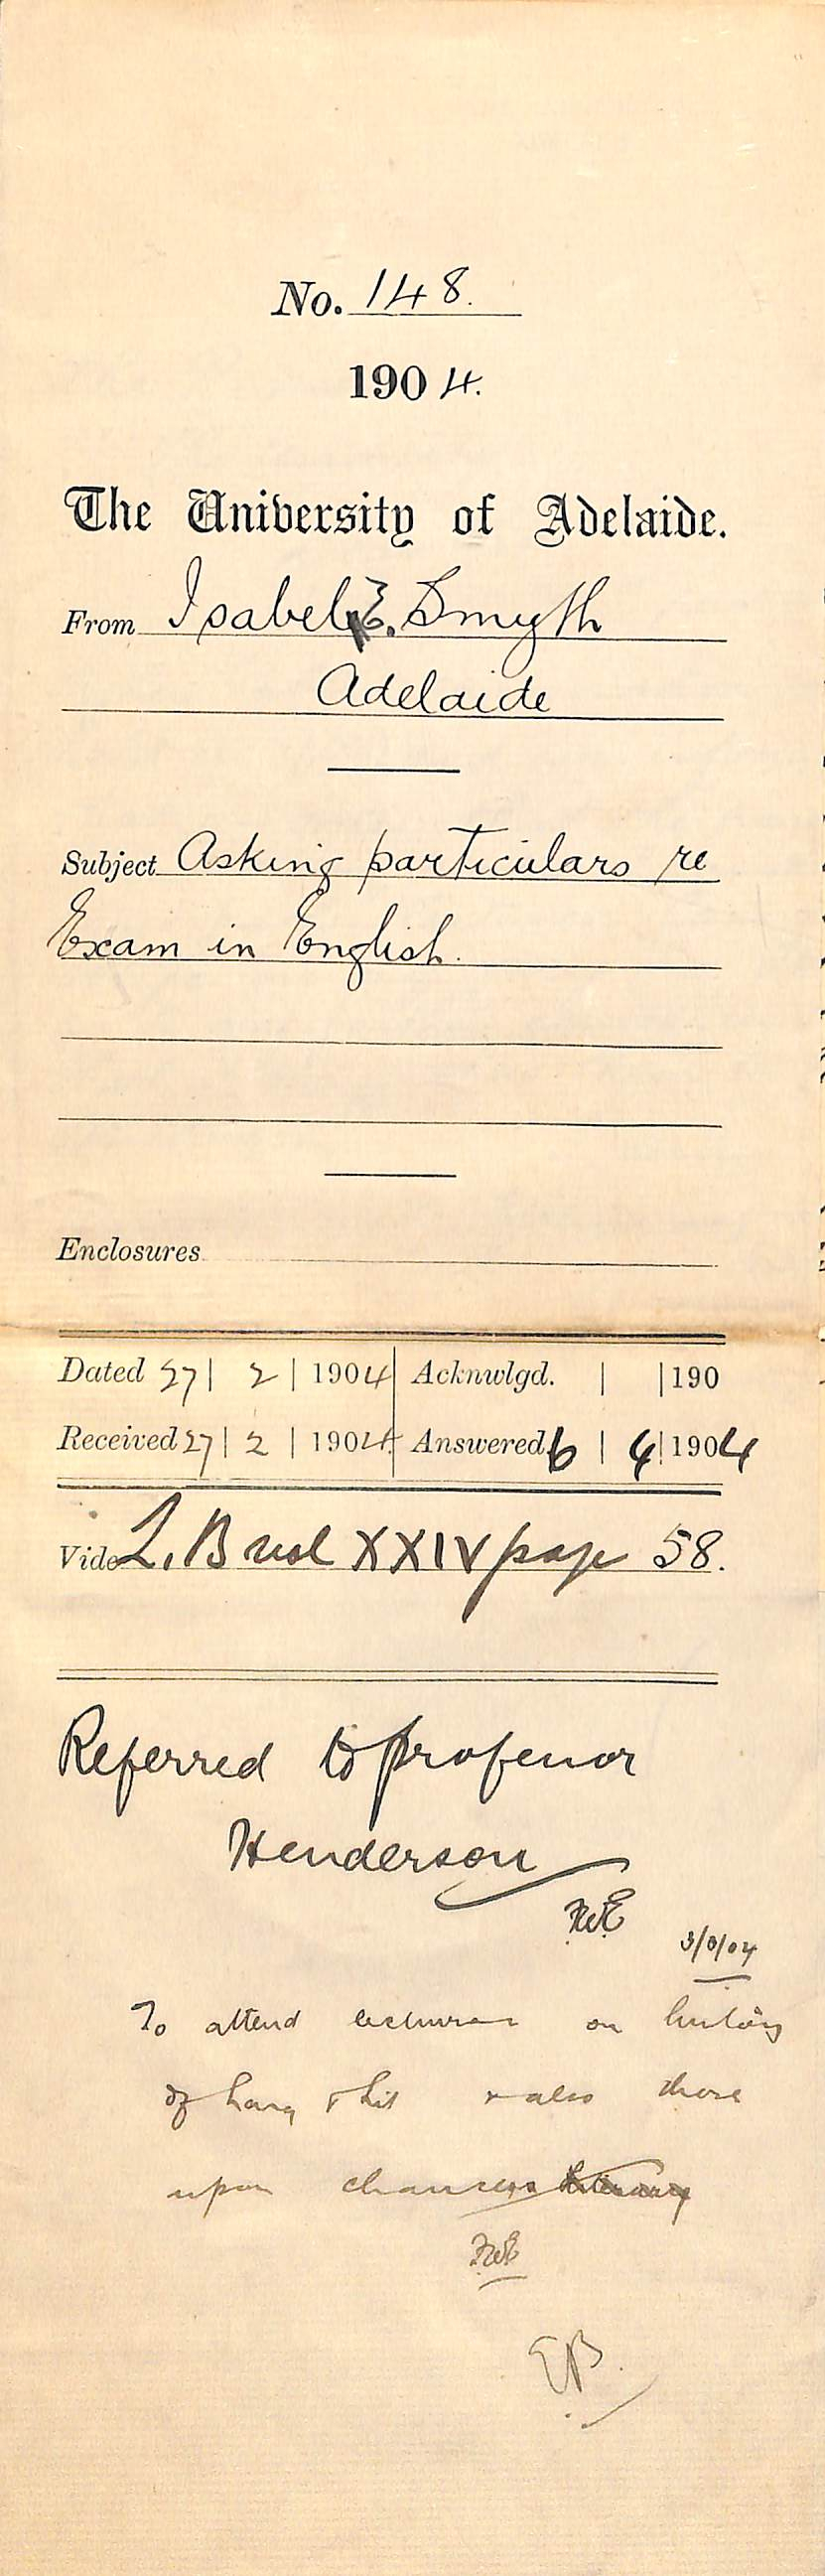 No. 148.
1904.
The University of Adelaide.
From Isabel E. Smyth
Adelaide
Subject Asking particulars re
Exam in English.
Enclosures
Dated 27 | 2 | 1904 Acknwlgd. | | 190
Received 27 | 2 | 1904 Answered 6 | 4 | 1904
Vide L. B vol XXIV page 58.
Referred to Professor
Henderson
3/3/04
To attend lectures on history
of lang & lit & also those
upon chaucer
EB.